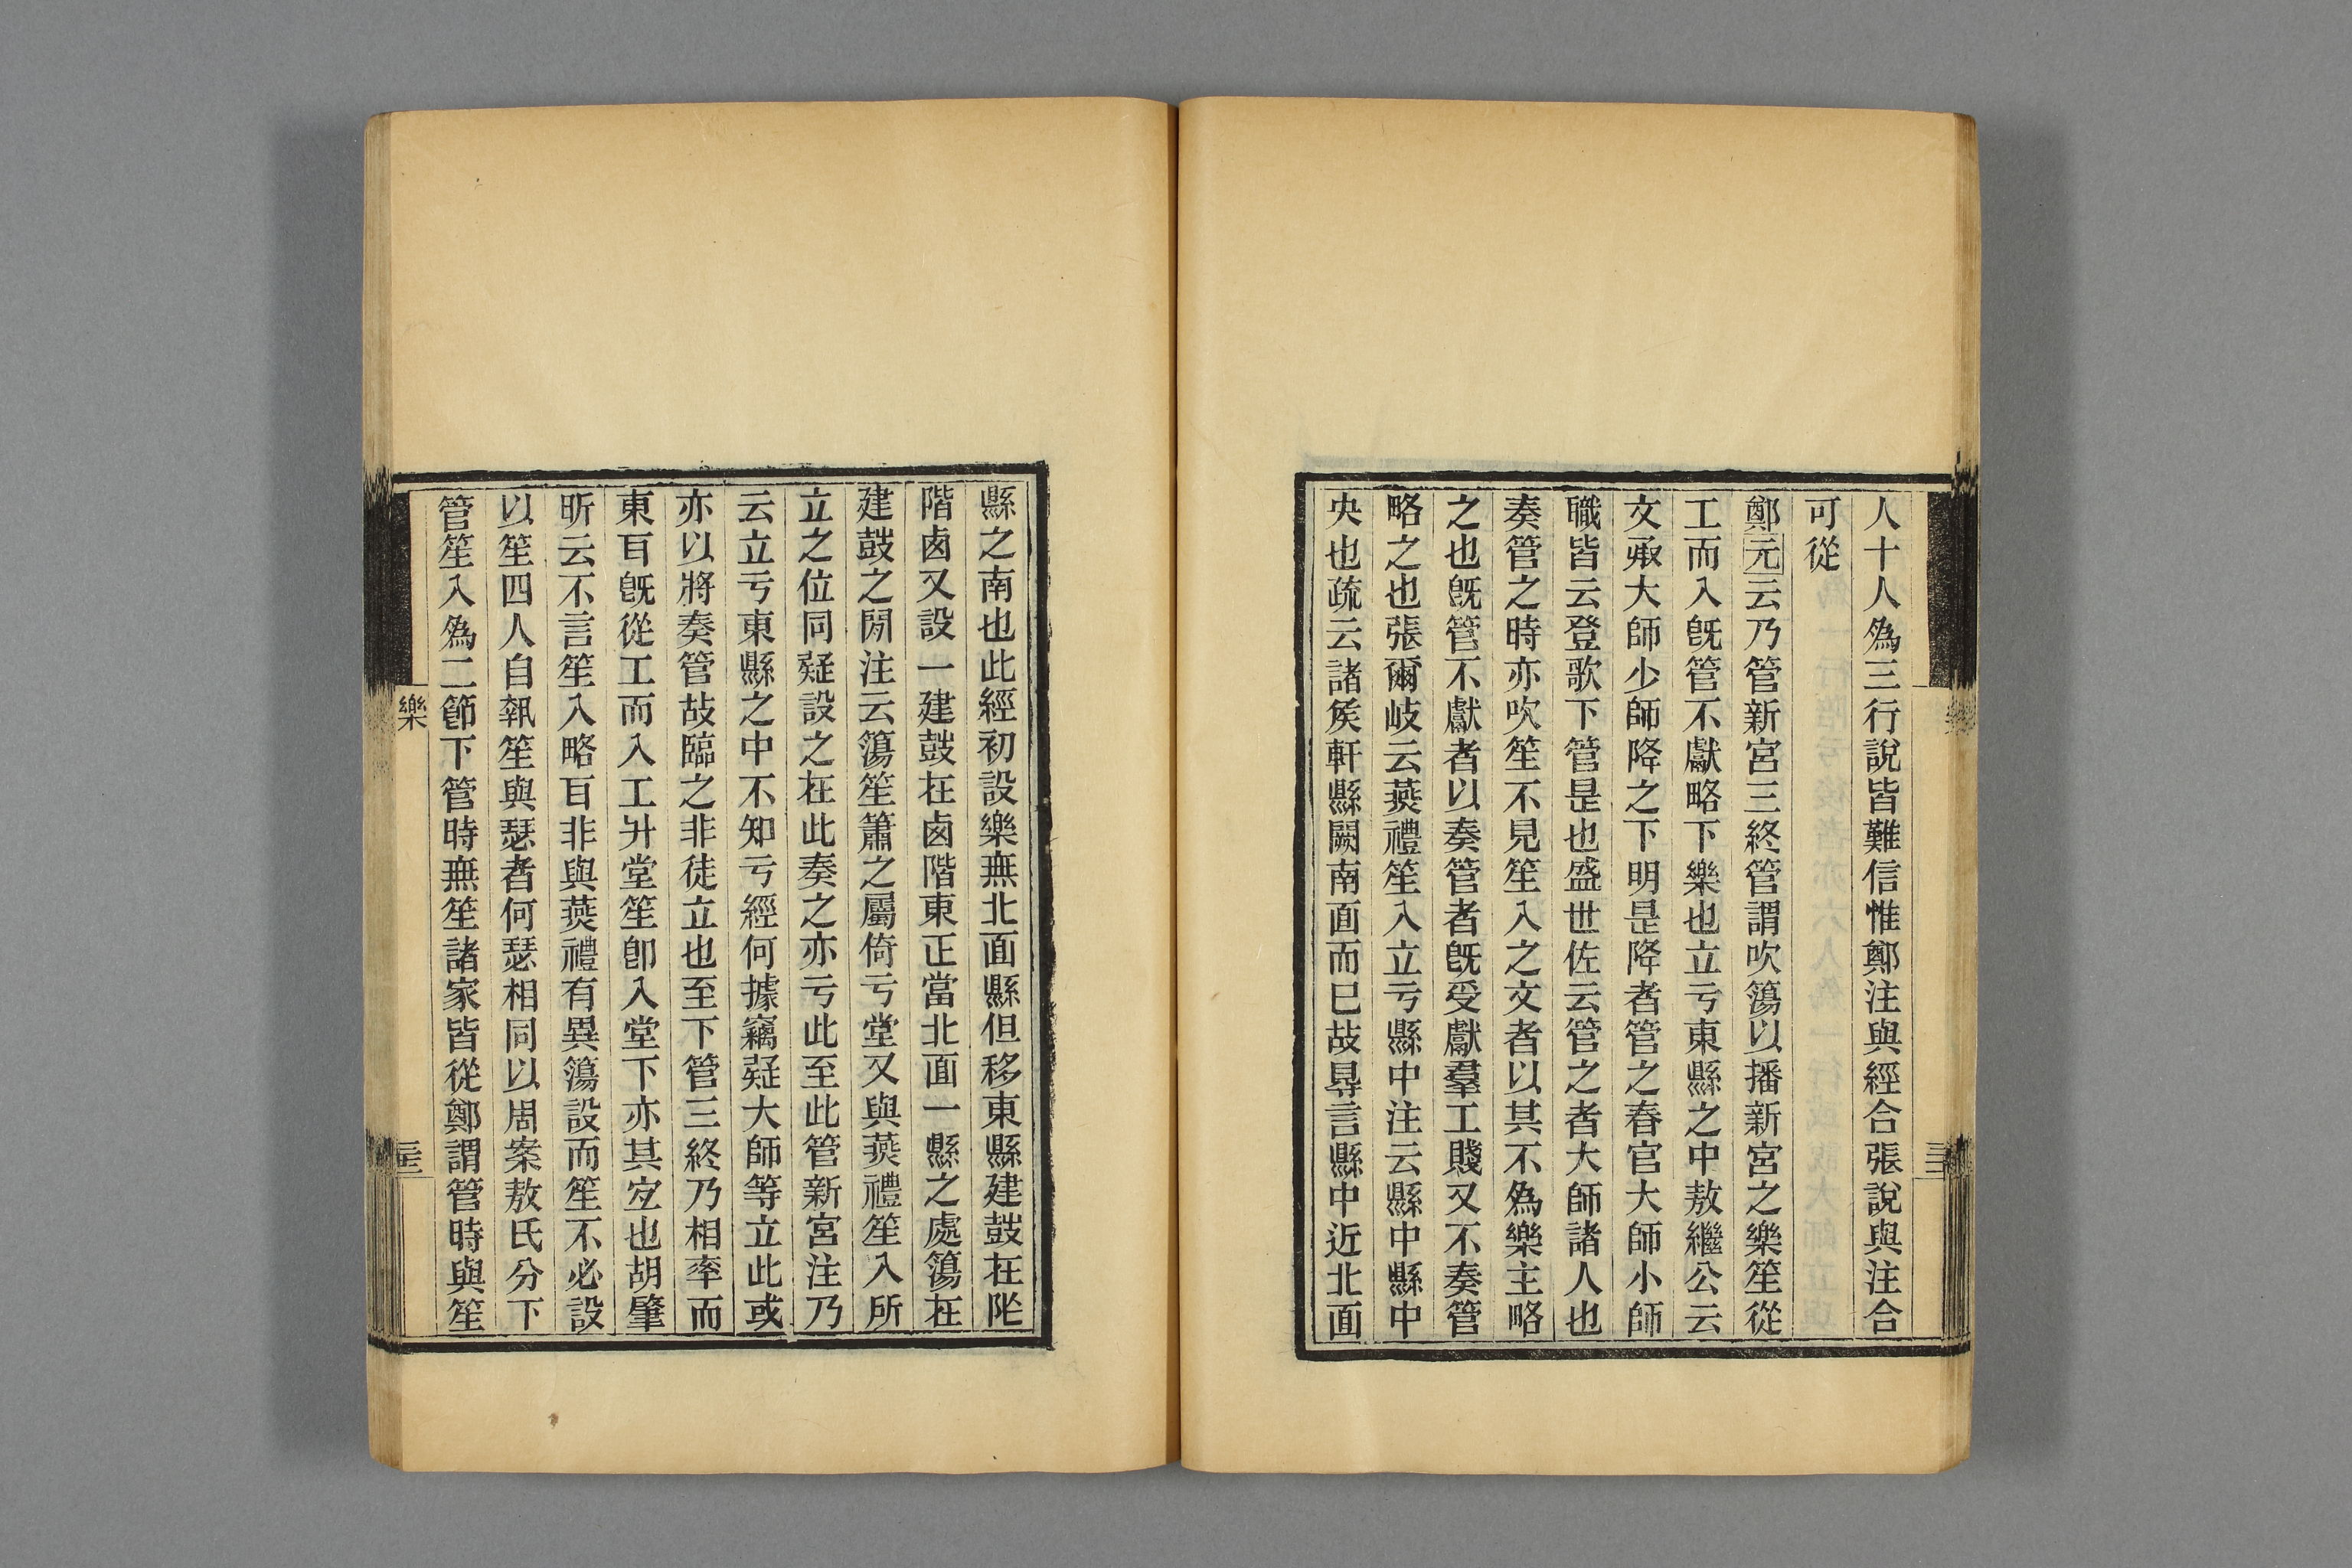 人十人爲三行說皆難信惟鄭注與經合張說與注合
可從
鄭元云乃管新宮三終管謂吹簜以播新宮之樂笙從
工而入旣管不獻略下樂也立亏東縣之中敖繼公云
文承大師少師降之下明是降者管之春官大師小師
職皆云登歌下管是也盛世佐云管之者大師諸人也
奏管之時亦吹笙不見笙入之文者以其不爲樂主略
之也旣管不獻者以奏管者旣受獻羣工賤又不奏管
略之也張爾岐云燕禮笙入立亏縣中注云縣中縣中
央也疏云諸矦軒縣闕南面而已故䙷言縣中近北面
縣之南也此經初設樂無北面縣但移東縣建鼓在阼
階㢴又設一建鼓在㢴階東正當北面一縣之處簜在
建鼓之閒注云簜笙簫之屬倚亏堂又與燕禮笙入所
立之位同疑設之在此奏之亦亏此至此管新宮注乃
云立亏東縣之中不知亏經何據竊疑大師等立此或
亦以將奏管故臨之非徒立也至下管三終乃相率而
東耳旣從工而入工升堂笙卽入堂下亦其宐也胡肇
昕云不言笙入略耳非與燕禮有異簜設而笙不必設
以笙四人自執笙與瑟者何瑟相同以周案敖氏分下
管笙入爲二節下管時無笙諸家皆從鄭謂管時與笙
樂